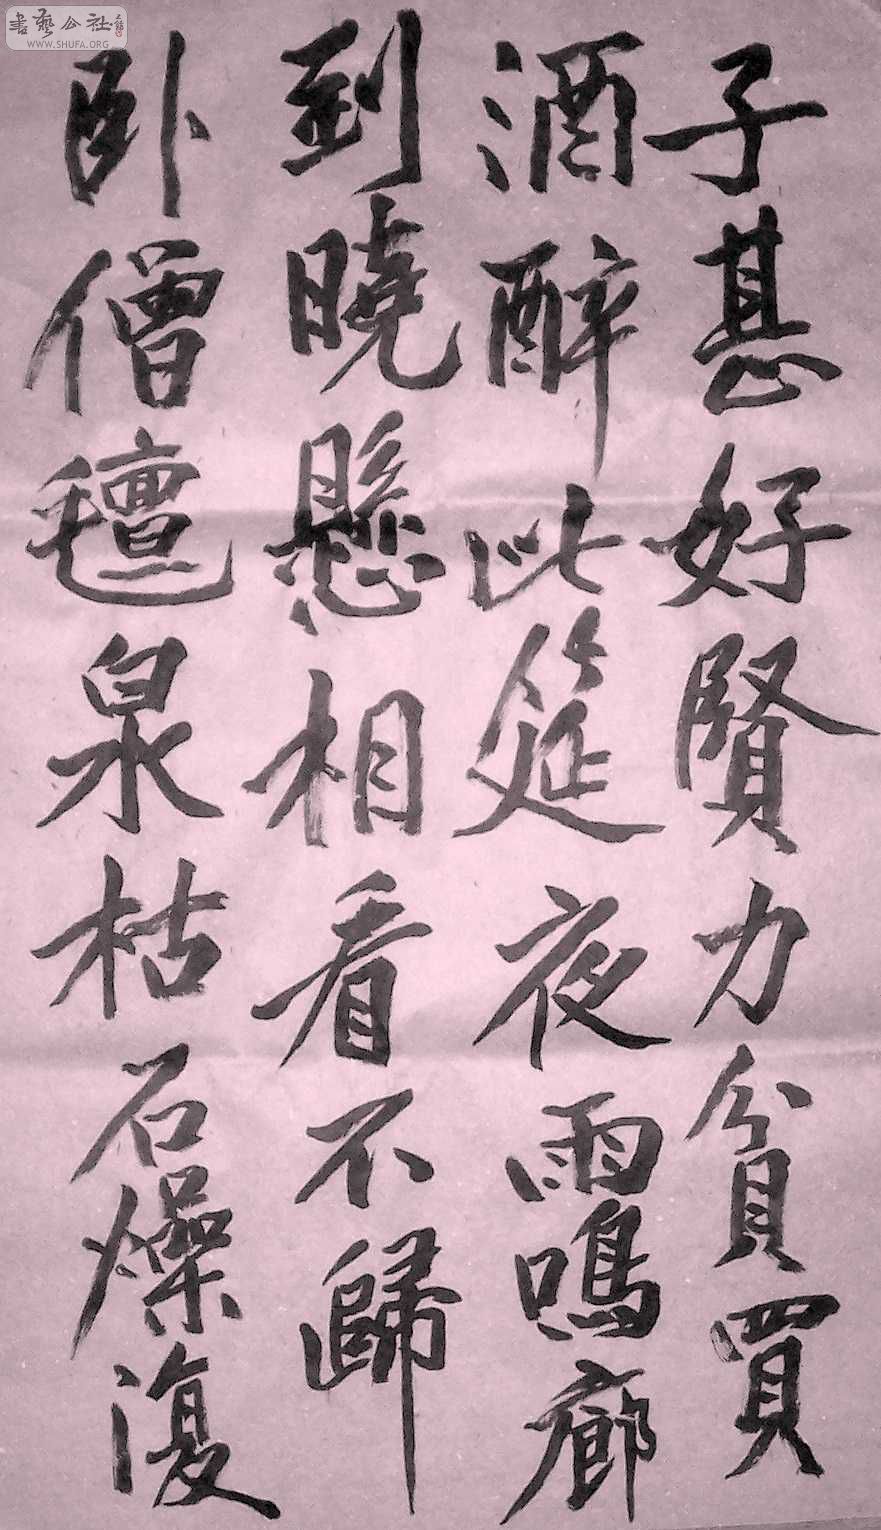 子甚好賢力貧買
酒醉此筵夜雨鳴廊
到曉懸相看不歸
臥僧氈泉枯石燥復
書藝公社
WWW.SHUFA.ORG